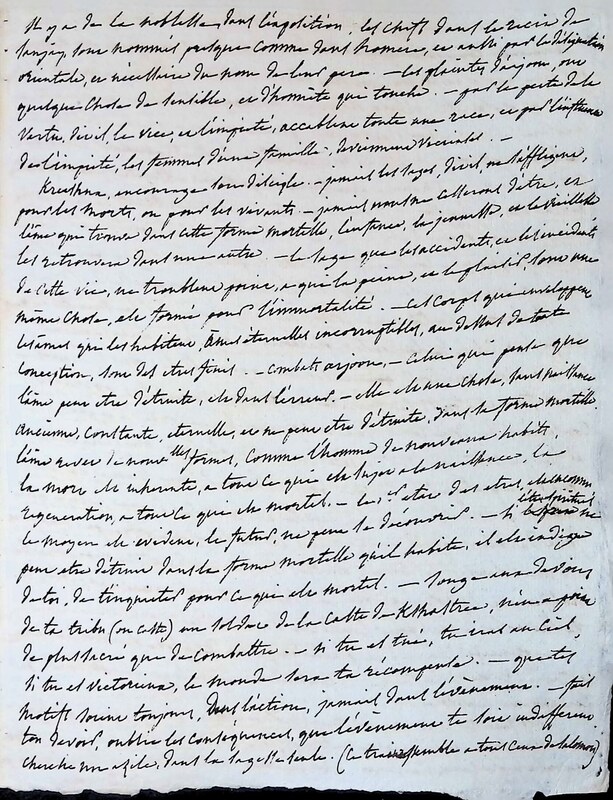 Il y a de la noblesse dans l'exposition, les chefs dans le récit de
Sanjay, sont nommés presque comme dans homere, et aussi par la désignation
orientale, et nécessaire du nom de leur pere. — les plaintes d'arjoon, ont
quelque chose de sensible, et d'honnete qui touche. — par la perte de la
vertu, dit il, le vice, et l'impiété, accablent toute une race, et par l'influence
de l'impiété, les femmes d'une famille, deviennent vicieuses. —
Kreeshna, encourage son disciple. — jamais les sages, dit il, ne s'affligent,
pour les morts, ou pour les vivants. — jamais nous ne cesserons d'etre, et
l'ame qui trouve dans cette forme mortelle, l'enfance, la jeunesse, et la vieillesse
les retrouvera dans une autre. — le sage que les accidents, et les incidents,
de cette vie, ne troublent point, a qui la peine, et le plaisir, sont une
même chose, est formé pour l'immortalité. — ces corps qui enveloppent
les ames qui les habitent, ames éternelles incorruptibles, au dessus de toute
conception, sont des etres finis. — combats arjoon, — celui qui pense que
l'ame peut etre détruite, est dans l'erreur. — elle est une chose, sans naissance
ancienne, constante, eternelle, et ne peut etre détruite, dans sa forme mortelle.
l'ame revet de nouvelles formes, comme l'homme de nouveaux habits,
la mort est inherente, a tout ce qui est sujet a la naissance, la
regeneration, a tout ce qui est mortel. — l'etat des etres, est inconnu
le moyen est evident, le futur, ne peut se découvrir. — si l'esprit ne
peut etre détruit dans la forme mortelle qu'il habite, il est indigne
de toi, de t'inquieter pour ce qui est mortel. — songe aux devoirs
de ta tribu (ou caste) un soldat de la caste de Kshatree, n'a
de plus sacré que de combattre. — si tu es tué, tu iras au Ciel,
si tu es victorieux, le monde sera ta récompense. — que tes
motifs soient toujours, dans l'action, jamais dans l'évènement. — fait
ton devoir, oublie les conséquences, que l'évènement te soit indifferent
cherche un azile, dans la sagesse seule. (ce trait ressemble a tous ceux de salomon)